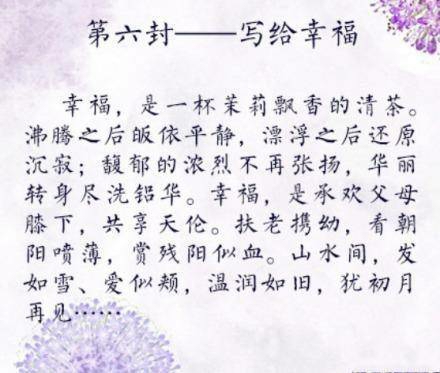 第六封——写给幸福
幸福，是一杯茉莉飘香的清茶。
沸腾之后皈依平静，漂浮之后还原
沉寂；馥郁的浓烈不再张扬，华丽
转身尽洗铅华。幸福，是承欢父母
膝下，共享天伦。扶老携幼，看朝
阳喷薄，赏残阳似血。山水间，发
如雪、爱似颊，温润如旧，犹初月
再见……